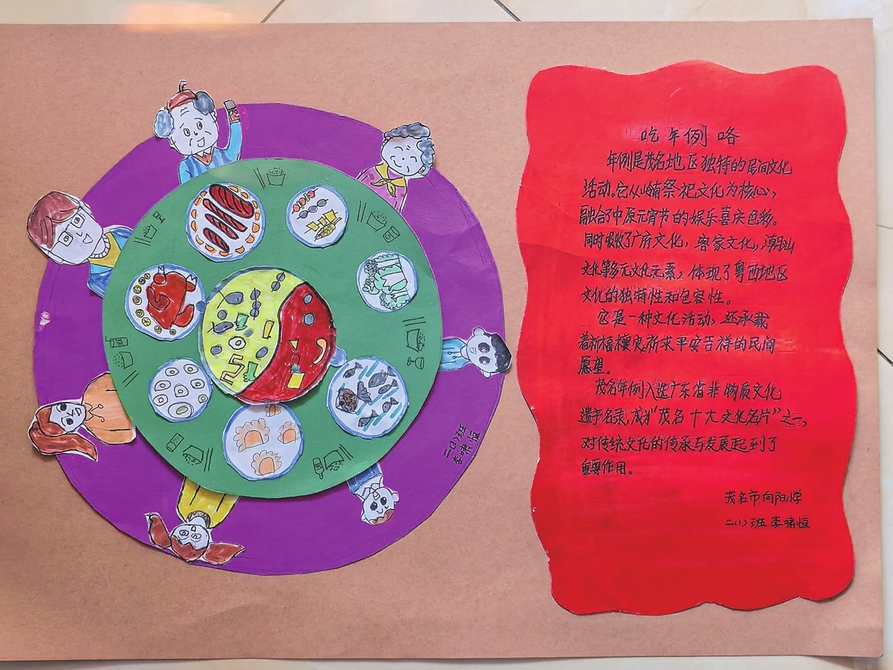 吃年例咯
年例是茂名地区独特的民间文化
活动。它从以庙祭祀文化为核心,
融合了中原元宵节的娱乐喜庆色彩。
同时吸收了广府文化,客家文化,潮汕
文化等多元文化元素,体现了粤西地区
文化的独特性和包容性。
它是一种文化活动,还承载
着祈福禳灾祈求平安吉祥的民间
愿望。
茂名年例入选广东省非物质文化
遗产名录,成为"茂名十大文化名片"之一,
对传统文化的传承与发展起到了
重要作用。
茂名市向阳小学
二(1)班 李啸恒
二(1)班
李啸恒